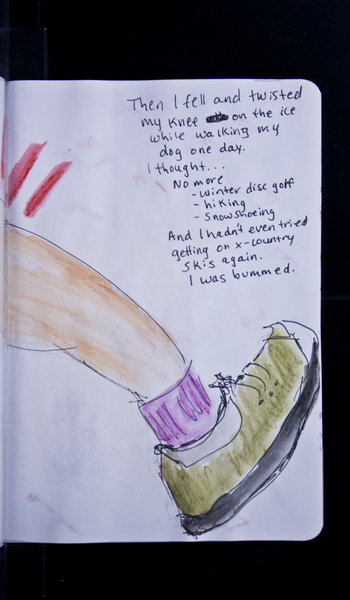 Then I fell and twisted
my knee on the ice
while walking my
dog one day.
I thought...
No more
- winter disc golf
- hiking
- snowshoeing
And I hadn't even tried
getting on x-country
skis again.
I was bummed.